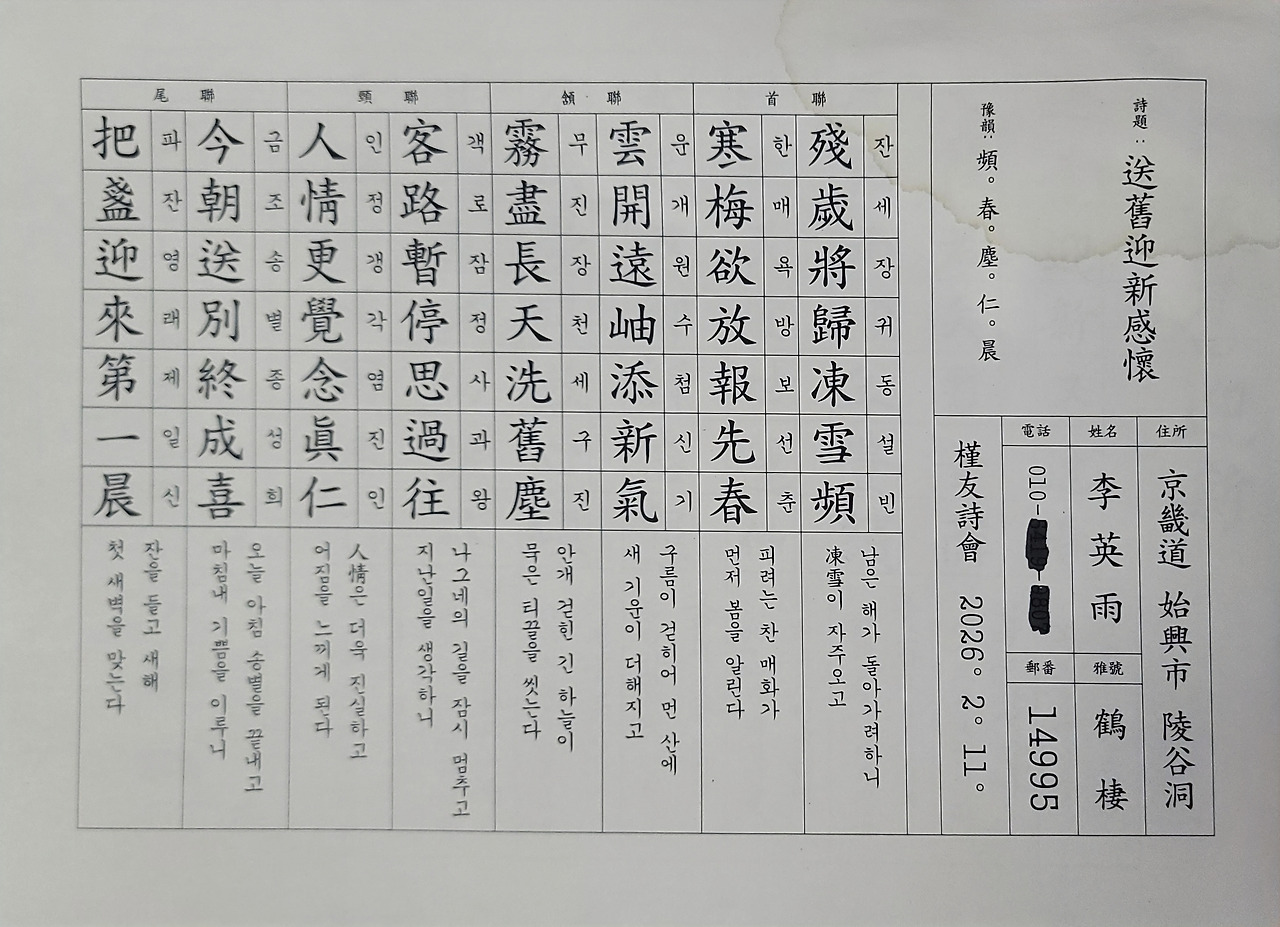 詩題: 送舊迎新感懷
豫韻: 頻。春。塵。仁。晨
住所
京畿道 始興市 陵谷洞
姓名
李英雨
雅號
鶴棲
電話
010-
郵番
14995
槿友詩會 2026。2。11。
首聯
殘歲將歸凍雪頻
잔세장귀동설빈
남은 해가 돌아가려하니
凍雪이 자주오고
寒梅欲放報先春
한매욕방보선춘
피려는 찬 매화가
먼저 봄을 알린다
頷聯
雲開遠岫添新氣
운개원수첨신기
구름이 걷히어 먼 산에
새 기운이 더해지고
霧盡長天洗舊塵
무진장천세구진
안개 걷힌 긴 하늘이
묵은 티끌을 씻는다
頸聯
客路暫停思過往
객로잠정사과왕
나그네의 길을 잠시 멈추고
지난일을 생각하니
人情更覺念眞仁
인정갱각염진인
人情은 더욱 진실하고
어짐을 느끼게 된다
尾聯
今朝送別終成喜
금조송별종성희
오늘 아침 송별을 끝내고
마침내 기쁨을 이루니
把盞迎來第一晨
파잔영래제일신
잔을 들고 새해
첫 새벽을 맞는다